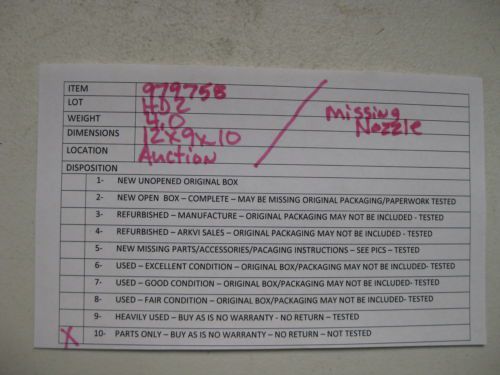 ITEM 979758
LOT HD2
WEIGHT 4.0
DIMENSIONS 12x9x10
LOCATION Auction
missing
Nozzle
DISPOSITION
1- NEW UNOPENED ORIGINAL BOX
2- NEW OPEN BOX – COMPLETE – MAY BE MISSING ORIGINAL PACKAGING/PAPERWORK TESTED
3- REFURBISHED – MANUFACTURE – ORIGINAL PACKAGING MAY NOT BE INCLUDED - TESTED
4- REFURBISHED – ARKVI SALES – ORIGINAL PACKAGING MAY NOT BE INCLUDED - TESTED
5- NEW MISSING PARTS/ACCESSORIES/PACAGING INSTRUCTIONS – SEE PICS – TESTED
6- USED – EXCELLENT CONDITION – ORIGINAL BOX/PACKAGING MAY NOT BE INCLUDED- TESTED
7- USED – GOOD CONDITION – ORIGINAL BOX/PACKAGING MAY NOT BE INCLUDED- TESTED
8- USED – FAIR CONDITION – ORIGINAL BOX/PACKAGING MAY NOT BE INCLUDED- TESTED
9- HEAVILY USED – BUY AS IS NO WARRANTY - NO RETURN – TESTED
X 10- PARTS ONLY – BUY AS IS NO WARRANTY – NO RETURN – NOT TESTED